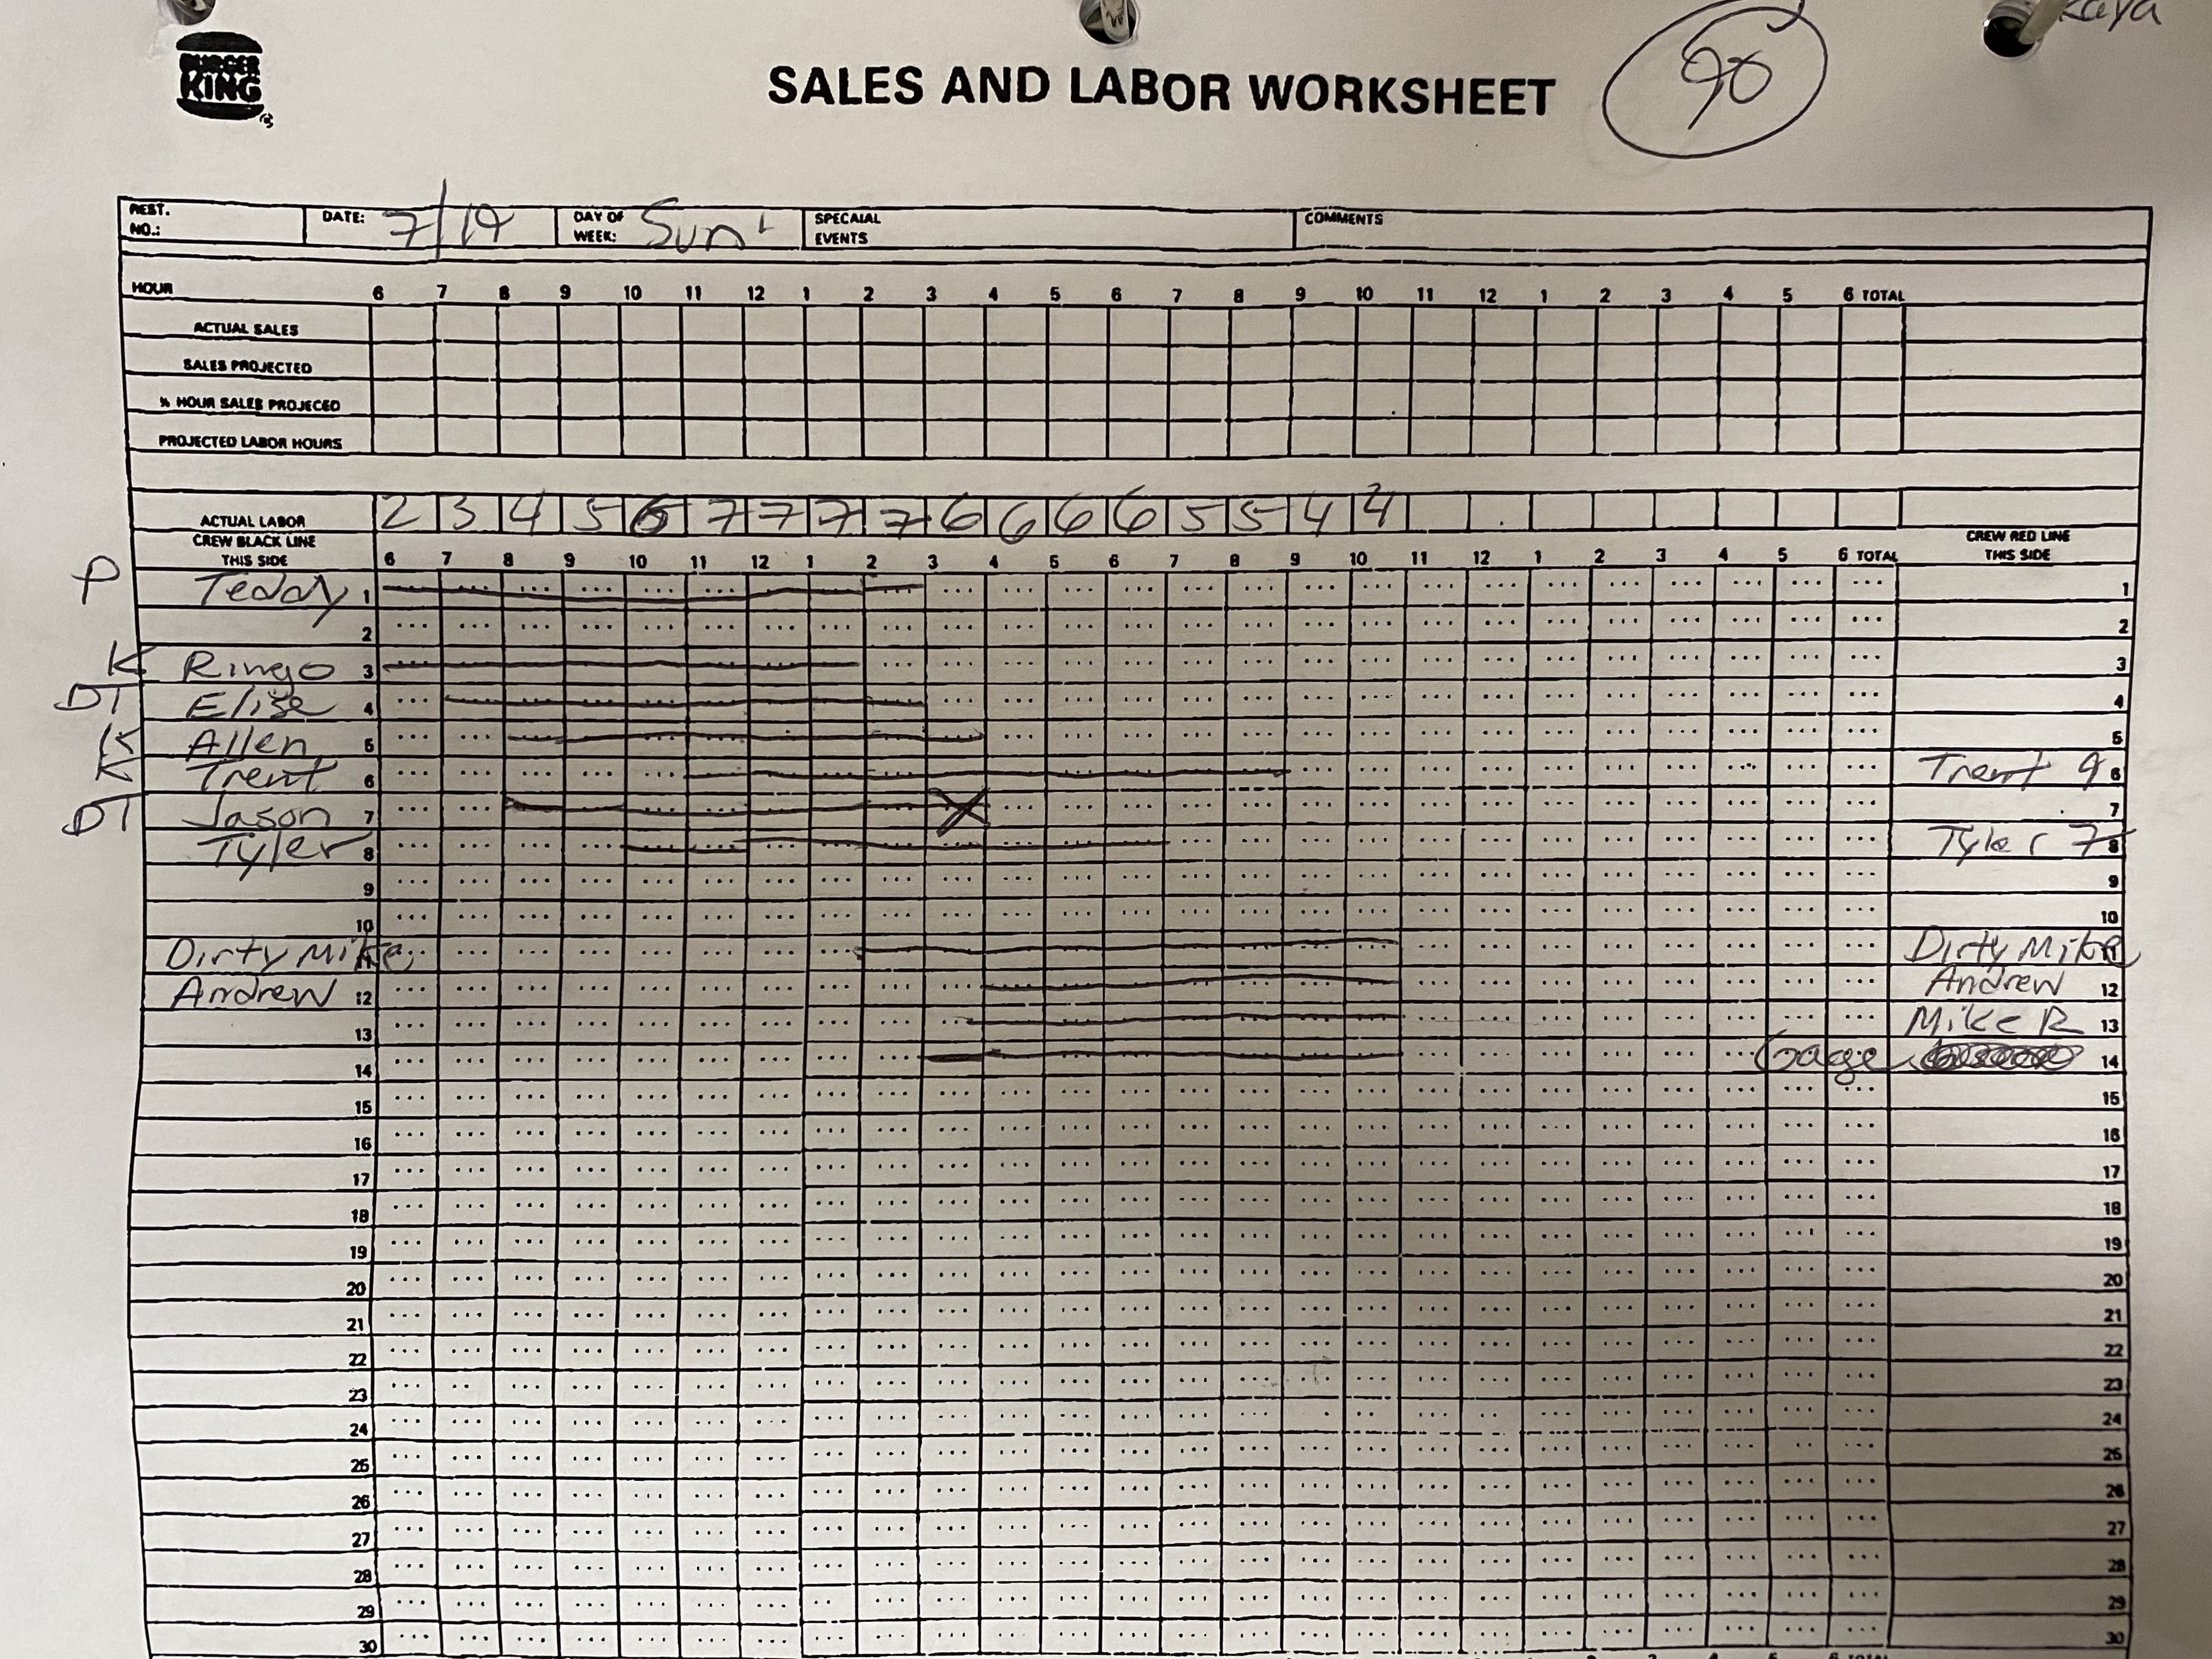 Kaya
BURGER
KING
®
SALES AND LABOR WORKSHEET
90
REST.
NO.:
DATE: 7/19
DAY OF
WEEK: Sun
SPECAIAL
EVENTS
COMMENTS
HOUR 6 7 8 9 10 11 12 1 2 3 4 5 6 7 8 9 10 11 12 1 2 3 4 5 6 TOTAL
ACTUAL SALES
SALES PROJECTED
% HOUR SALES PROJECED
PROJECTED LABOR HOURS
ACTUAL LABOR 2 3 4 5 6 7 7 7 7 6 6 6 6 5 5 4 4
CREW BLACK LINE
THIS SIDE
6 7 8 9 10 11 12 1 2 3 4 5 6 7 8 9 10 11 12 1 2 3 4 5 6 TOTAL
CREW RED LINE
THIS SIDE
P Teddy 1 1
2 2
K Ringo 3 3
DT Elise 4 4
K Allen 5 5
K Trent 6 Trent 9 6
DT Jason 7 X 7
Tyler 8 Tyler 7 8
9 9
10 10
Dirty Mike 11 Dirty Mike 11
Andrew 12 Andrew 12
13 Mike R 13
14 Gage 14
15 15
16 16
17 17
18 18
19 19
20 20
21 21
22 22
23 23
24 24
25 25
26 26
27 27
28 28
29 29
30 30